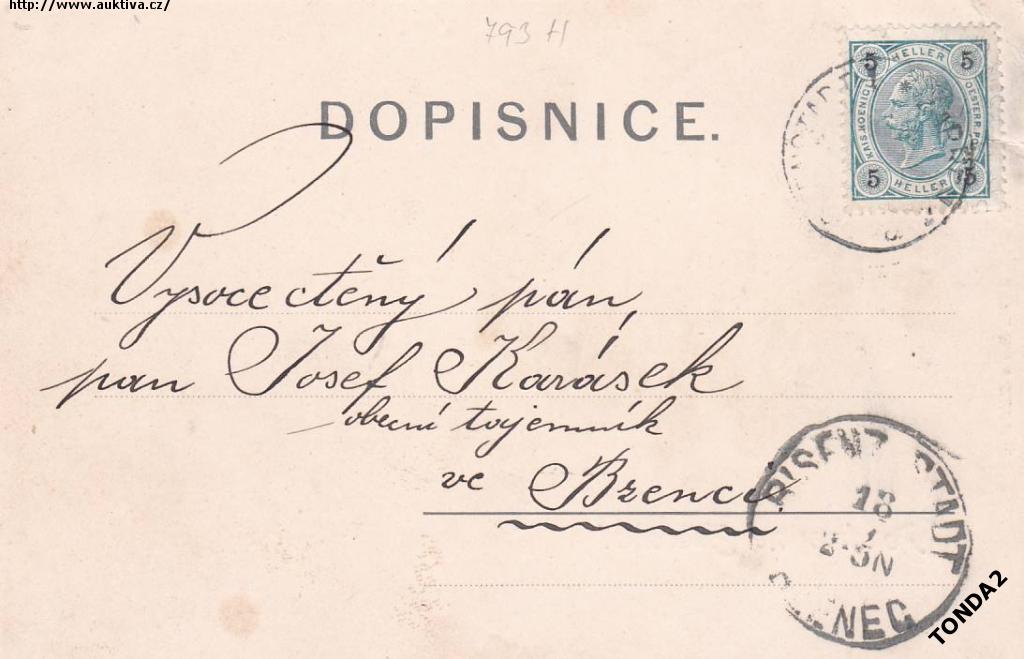 http://www.auktiva.cz/
793 H
DOPISNICE.
5 HELLER 5
KAIS. KOENIGL. OESTERR. POST
5 HELLER 5
Vysocectěný pán,
pan Josef Karásek
obecní tajemník
ve Bzenci.
BISENZ STADT
18
BZENEC
TONDA2